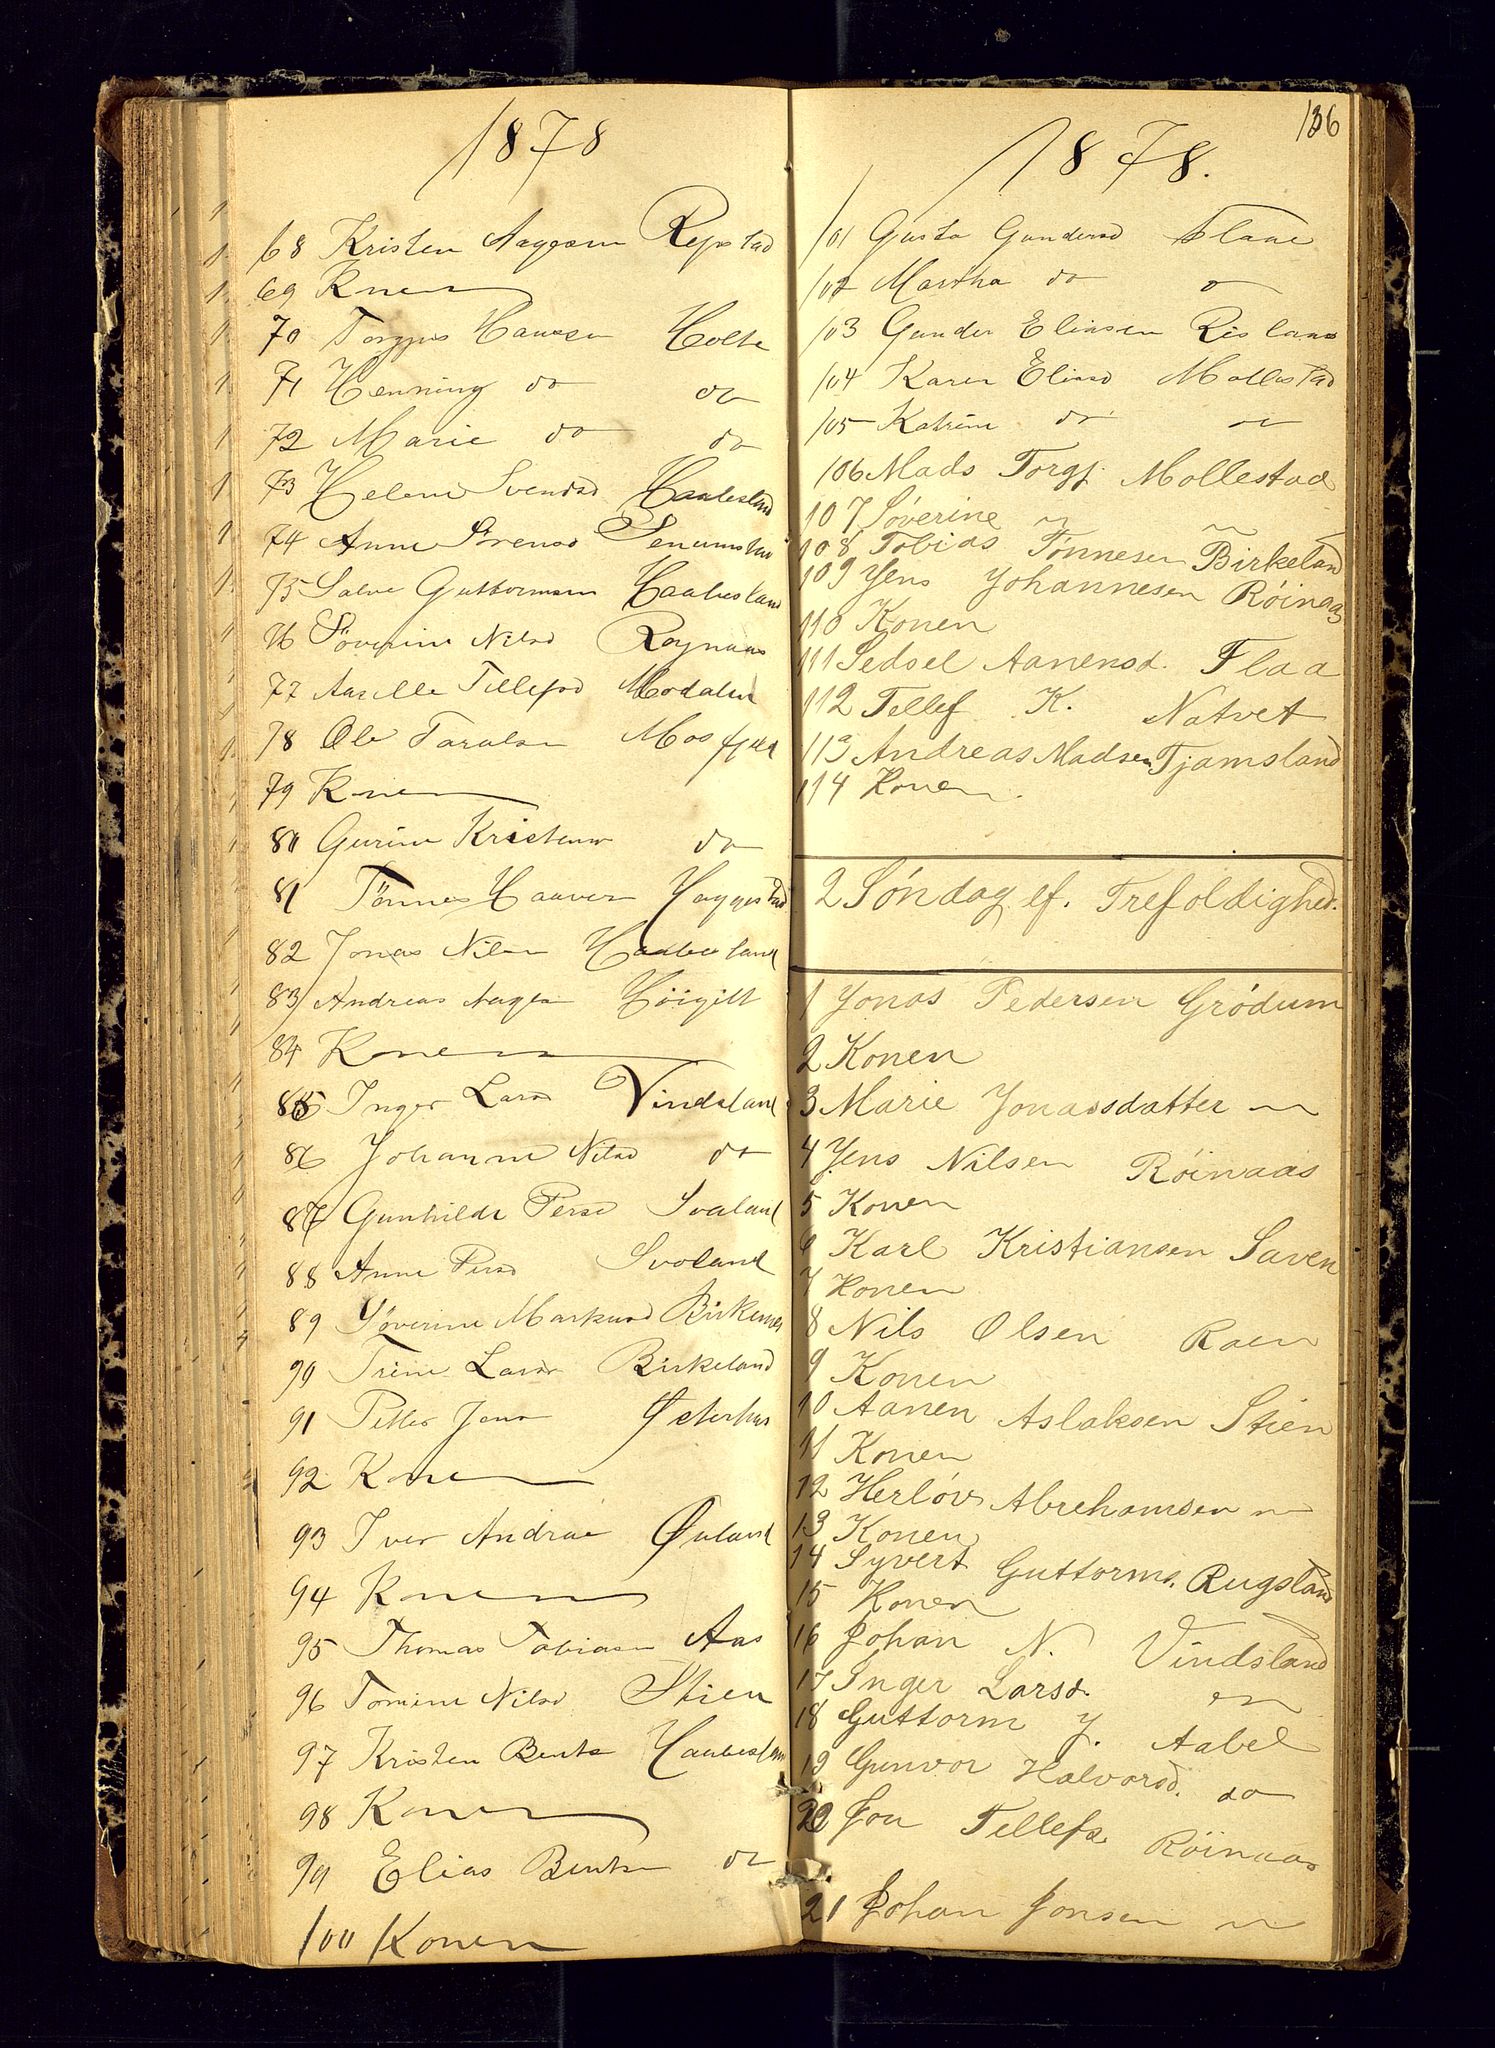 1878
68 Kristen Aagesen Repstad
69 Konen
70 Torgjus Hanssen Holte
71 Henning do do
72 Marie do do
73 Helene Svensd Haabesland
74 Anne Sörensd Senumstad
75 Salve Guttormsen Haabesland
76 Söverine Nilsd Røynaas
77 Aasille Tellefsd Modalen
78 Ole Taralsen Mosfjeld
79 Konen
80 Gurine Kristensd do
81 Tönnes Haaversen Haggestad
82 Jonas Nilsen Haabesland
83 Andreas Aagesen Höigilt
84 Konen
85 Inger Larsd Vindsland
86 Johanne Nilsd do
87 Gunhilde Persd Svaland
88 Anne Persd Svoland
89 Söverine Markusd Birkenes
90 Trine Larsd Birkeland
91 Petter Jens Østerhus
92 Konen
93 Iver Andrae Øuland
94 Konen
95 Thomas Tobiasen Aas
96 Tomine Nilsd Stien
97 Kristen Bents Haabesland
98 Konen
99 Elias Bents do
100 Konen
136
1878.
101 Gusta Gundersd Flaae
102 Martha do
103 Gunder Eliasen Risland
104 Karen Eliasd Mollestad
105 Katrine do
106 Mads Torgj. Mollestad
107 Søverine
108 Tobias Tønnesen Birkeland
109 Jens Johannesen Røinaas
110 Konen
111 Sedsel Aanensd. Flaa
112 Tellef K. Natvet
113 Andreas Madsen Tjamsland
114 Konen.
2 Søndag ef. Trefoldighed.
1 Jonas Pedersen Grødum
2 Konen
3 Marie Jonassdatter
4 Jens Nilsen Røinaas
5 Konen
6 Karl Kristiansen Saven
7 Konen
8 Nils Olsen Raen
9 Konen
10 Aanen Aslaksen Stien
11 Konen
12 Herløv Abrehamsen
13 Konen
14 Syvert Guttorms. Rugsland
15 Konen
16 Johan N. Vindsland
17 Inger Larsd.
18 Guttorm J. Aabel
19 Gunvor Halvorsd. do
20 Jon Tellefs. Røinaas
21 Johan Jonsen